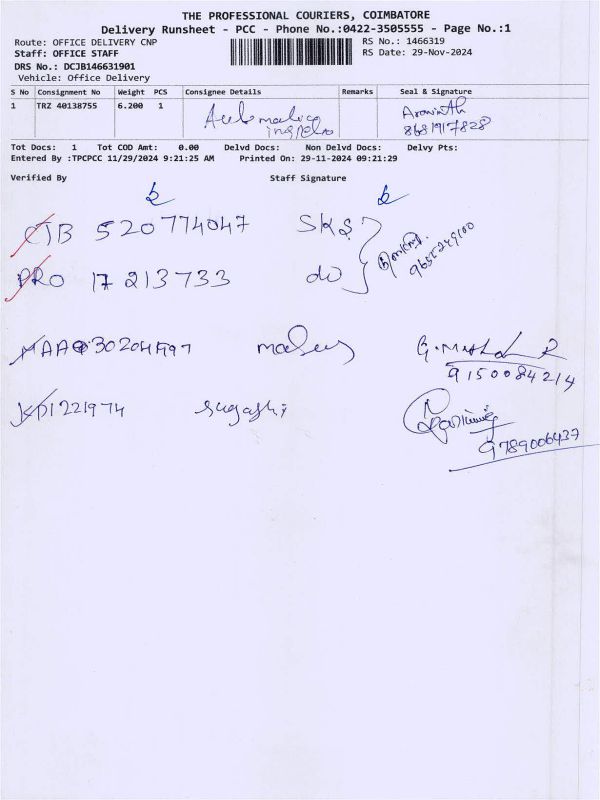 THE PROFESSIONAL COURIERS, COIMBATORE
Delivery Runsheet - PCC - Phone No.:0422-3505555 - Page No.:1
Route: OFFICE DELIVERY CNP
RS No.: 1466319
Staff: OFFICE STAFF
RS Date: 29-Nov-2024
DRS No.: DCJB146631901
Vehicle: Office Delivery
S No Consignment No Weight PCS Consignee Details Remarks Seal & Signature
1 TRZ 40138755 6.200 1 Aravinth
8681917828
Tot Docs: 1 Tot COD Amt: 0.00 Delvd Docs: Non Delvd Docs: Delvy Pts:
Entered By :TPCPCC 11/29/2024 9:21:25 AM Printed On: 29-11-2024 09:21:29
Verified By Staff Signature
CJB 520774047 SKS
PRO 17 213733 do
9150084214
KDI221974
9789006437